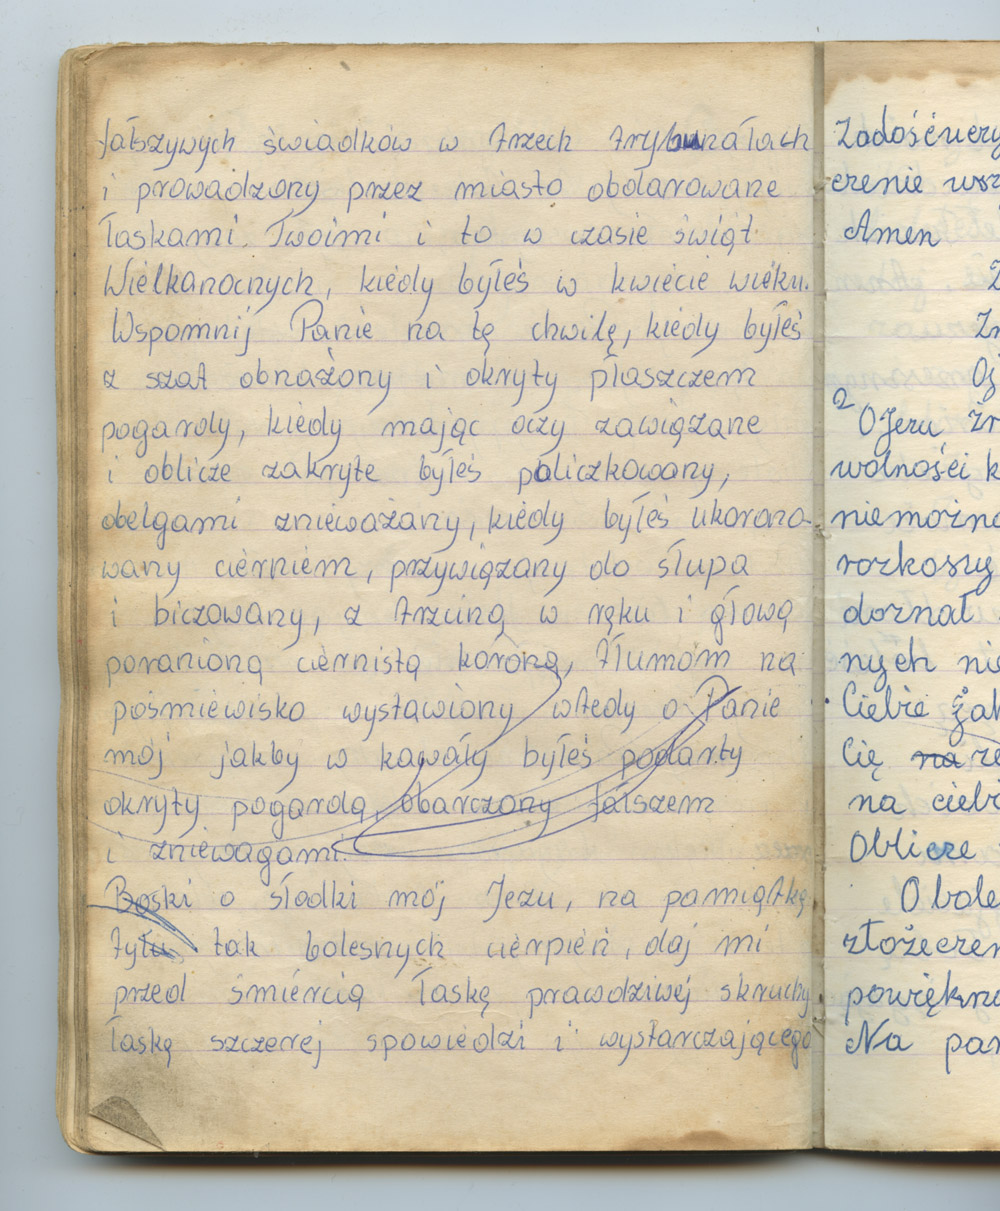 fałszywych świadków w trzech trybunałach
i prowadzony przez miasto obdarowane
łaskami Twoimi i to w czasie świąt
Wielkanocnych, kiedy byłeś w kwiecie wieku.
Wspomnij Panie na tę chwilę, kiedy byłeś
z szat obnażony i okryty płaszczem
pogardy, kiedy mając oczy zawiązane
i oblicze zakryte byłeś policzkowany,
obelgami znieważany, kiedy byłeś ukorono-
wany cierniem, przywiązany do słupa
i biczowany, z trzciną w ręku i głową
poranioną ciernistą koroną, tłumom na
pośmiewisko wystawiony wtedy o Panie
mój jakby w kawały byłeś podarty
okryty pogardą, obarczony fałszem
i zniewagami.
Boski o słodki mój Jezu, na pamiątkę
tylu tak bolesnych cierpień, daj mi
przed śmiercią łaskę prawdziwej skruchy,
łaskę szczerej spowiedzi i wystarczającego
Zadośćuczy
czenie wsz
Amen
Z
Zr
Oj
2 O Jezu źr
wolności k
niemożno
rozkoszy
doznał
nych nie
Ciebie żał
Cię na ze
na ciebi
Oblicze
O bole
złożeczen
powiękrz
Na pam